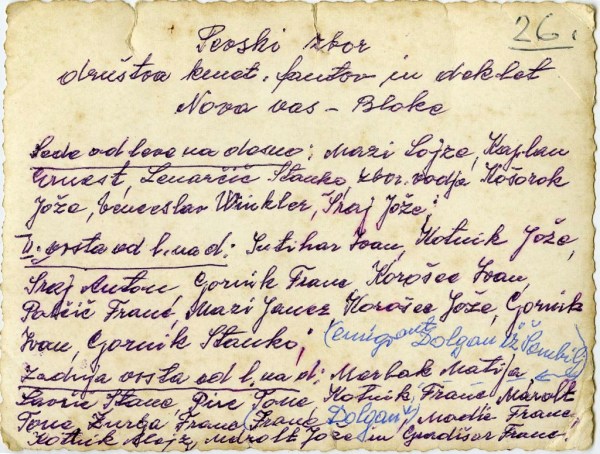 26.
Pevski zbor
društva kmet. fantov in deklet
Nova vas - Bloke
Sede od leve na desno: Mazi Lojze, Kaplan
Ernest, Lenarčič Stanko, zbor. vodja Košorok
Jože, Venceslav Winkler, Sraj Jože;
II. vrsta od l. na d.: Intihar Ivan, Kotnik Jože,
Sraj Anton, Gornik Franc, Korošec Ivan,
Palčič Franc, Mazi Janez, Korošec Jože, Gornik
Ivan, Gornik Stanko;
(emigrant Dolgan iz
Zadnja vrsta od l. na d. Marbak Matija
Lavrič Stane, Pirc Tone, Kotnik Franc, Marolt
Tone, Zurga Franc (Franc Dolgan), Modic Franc
Kotnik Alojz, Marolt Jože in Gordišar Franc.